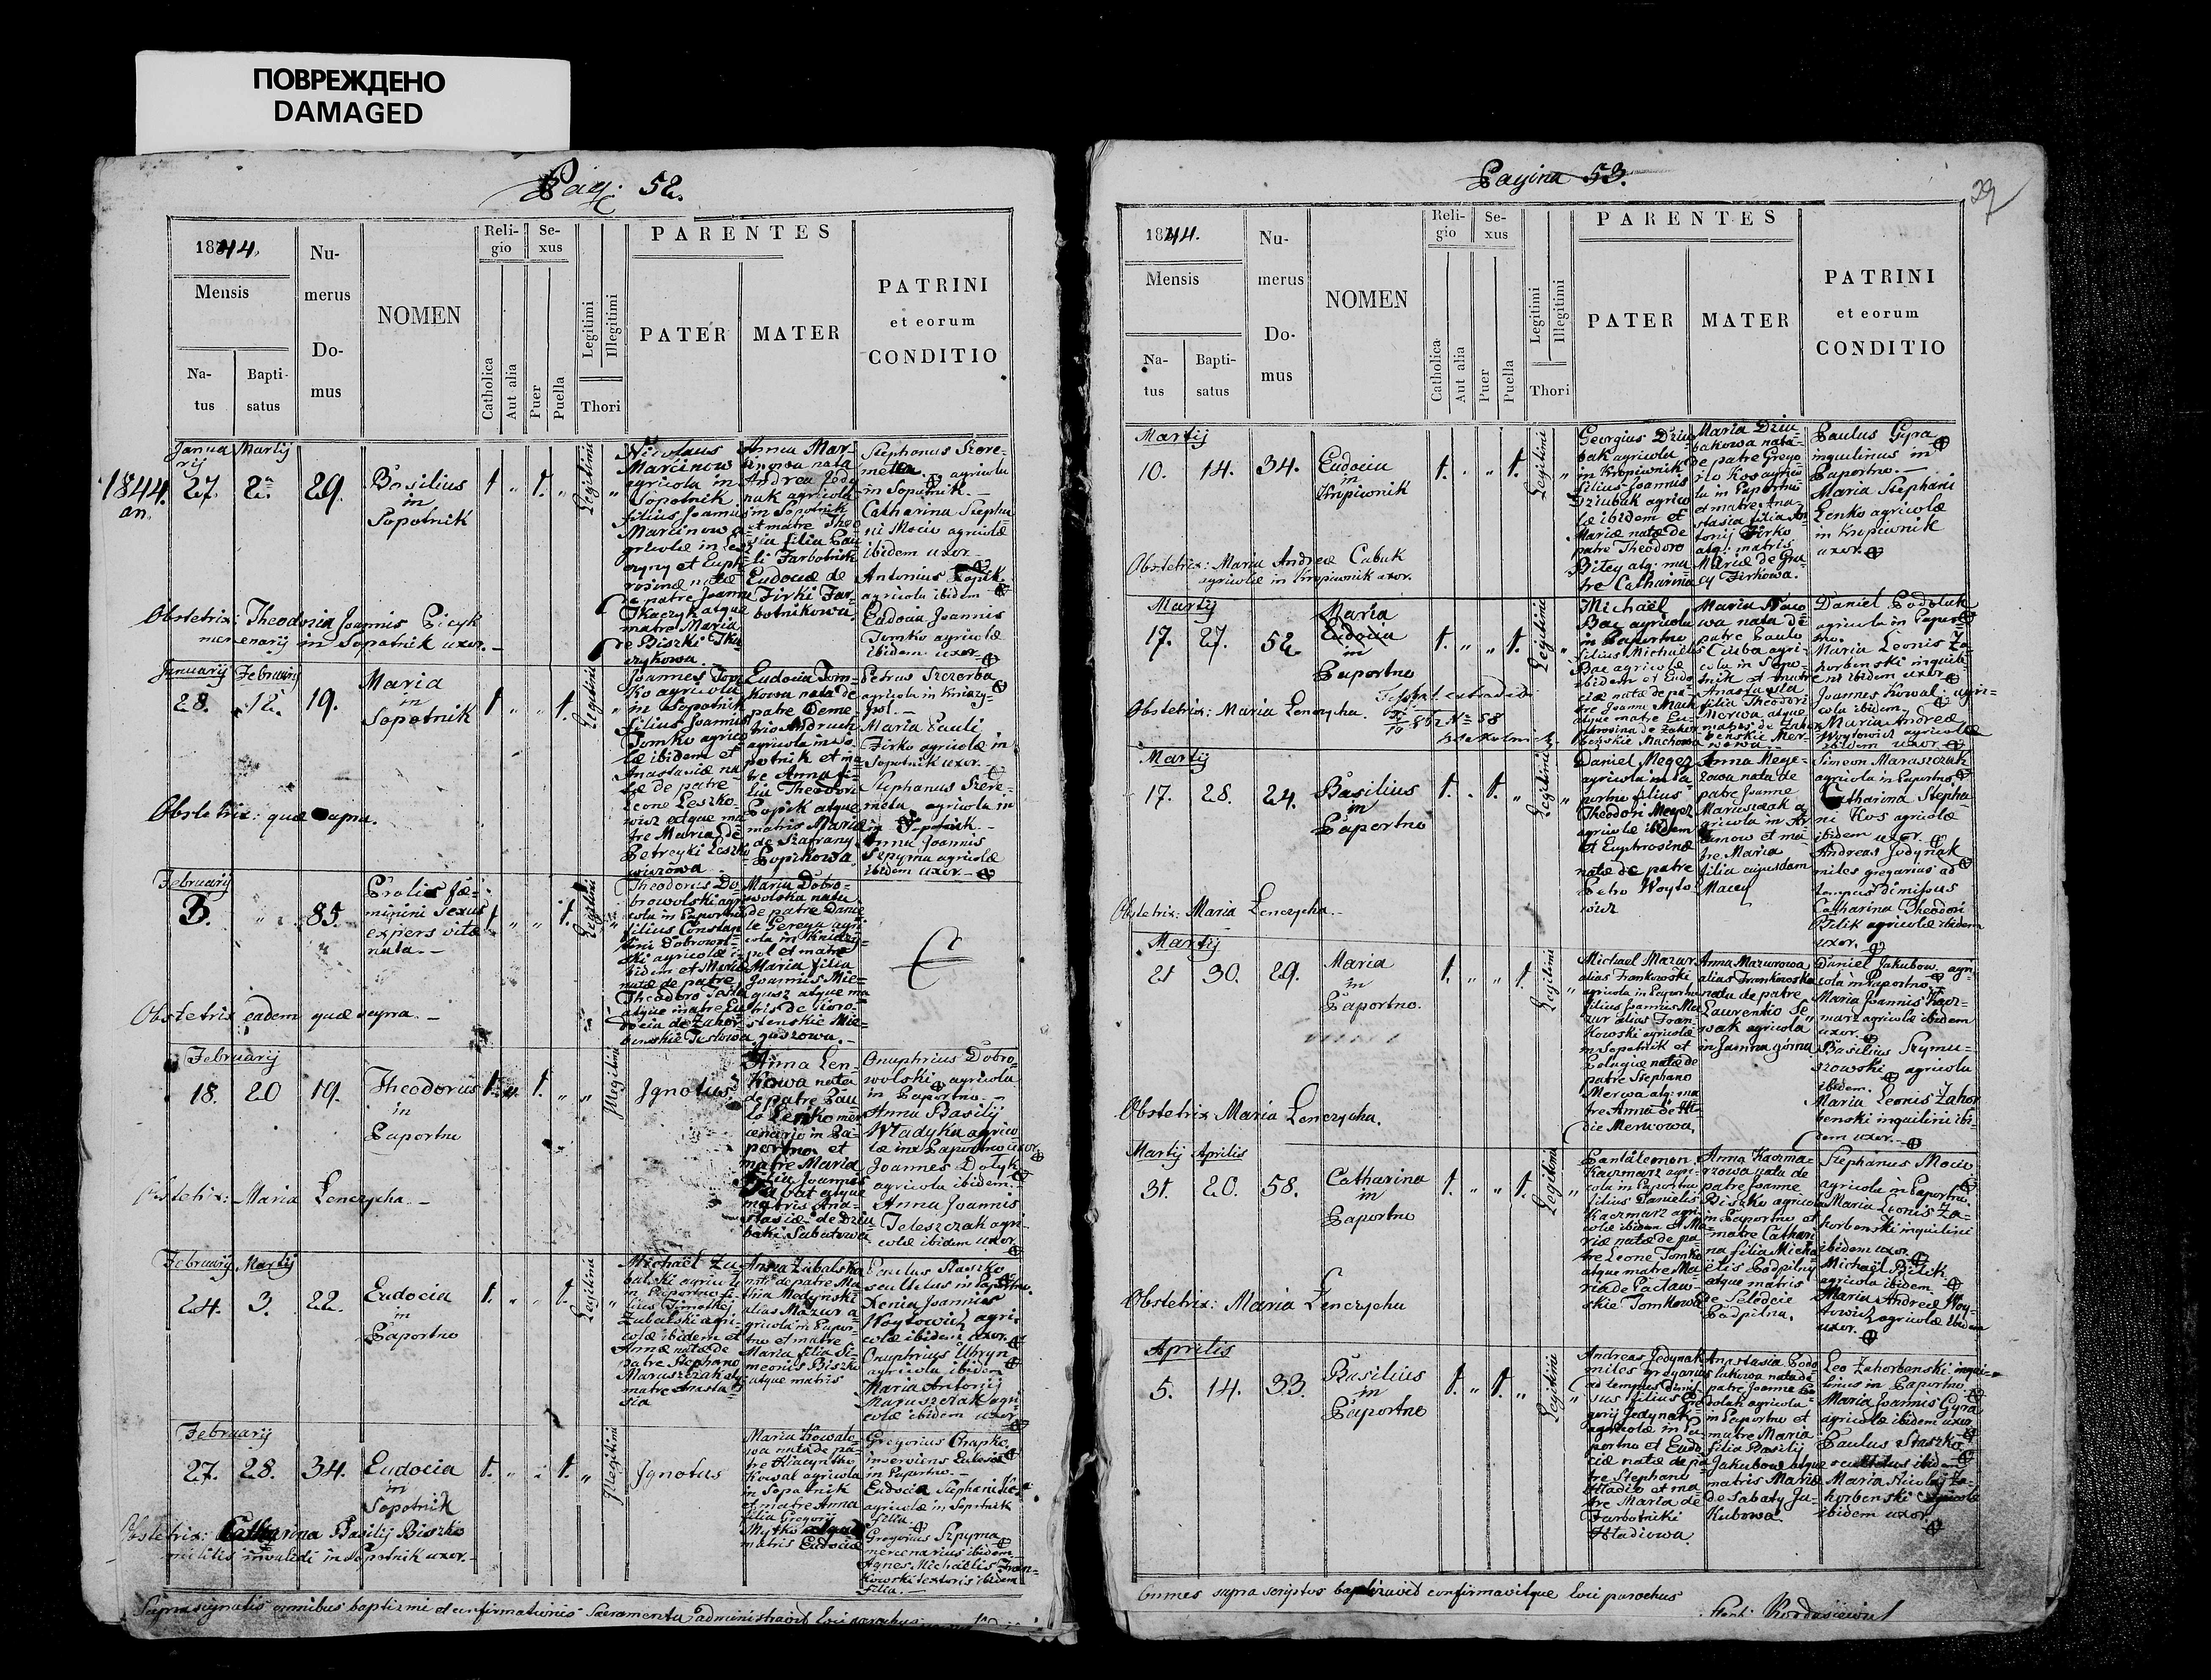 ПОВРЕЖДЕНО
DAMAGED
Pag. 52.
1844.
Mensis
Na-
tus
Bapti-
satus
Nu-
merus
Do-
mus
NOMEN
Reli-
gio
Catholica
Aut alia
Se-
xus
Puer
Puella
Legitimi
Illegitimi
Thori
PARENTES
PATER
MATER
PATRINI
et eorum
CONDITIO
1844.
an.
Janua Martij
rij
27. 2. 29.
Basilius
in
Sopotnik
1 „ 1. „
Legitimi
Nicolaus
Marcinow
agricola in
Sopotnik
filius Joannis
Marcinow a
gricolæ in
et Euph
rosinæ natæ
e patre Joanne
Tkaczyk atque
matre Maria
de Biszki Tka
czykowa.
Anna Mar-
cinowa nata
Andrea Jedy
nak agricola
in Sopotnik
et matre Theo
sia filia Pau
li Farbotnik
Eudociæ de
Firki Far-
botnikowa.
Stephanus Szere-
meta agricola
in Sopotnik.
Catharina Stepha
ni Mocio agricolæ
ibidem uxor.
Antonius Popik
agricola ibidem
Eudocia Joannis
Tomko agricolæ
ibidem uxor.
Obstetrix: Theodozia Joannis Picyk
mercenarij in Sopotnik uxor.
Januarij Februarij
28. 12. 19.
Maria
in
Sopotnik
1 „ „ 1.
Legitimi
Joannes Tom
ko agricola
in Sopotnik
filius Joannis
Tomko agrico
læ ibidem et
Anastasiæ na
tæ de patre
Leone Leszko-
wicz atque ma
tre Maria de
Petreyki Leszko
wiczowa
Eudocia Tom-
kowa nata de
patre Deme-
trio Andruch
agricola in So
potnik et ma
tre Anna fi-
lia Theodori
Popik atque
matris Mariæ
de Szafrany
Popikowa
Petrus Szczerba
agricola in Kniazy-
pol.
Maria Pauli
Firko agricolæ in
Sopotnik uxor.
Stephanus Szere-
meta agricola in
in Sopotnik.
Anna Joannis
Szpyrna agricolæ
ibidem uxor.
Obstetrix: quæ supra.
Februarij
3. „ 85.
Prolis fæ-
minini sexus
expers vitæ
nata.
1 „ „ 1.
Legitimi
Theodorus Do-
browolski agri
cola in Paportno
filius Constan
tini Dobrowol-
ski agricolæ i-
bidem et Mariæ
natæ de patre
Theodoro Tesla
atque matre Eu
docia de Zahor
benskie Teslowa
Maria Dobro-
wolska nata
de patre Danie
le Gerega agri
cola in Kniazy-
pol et matre
Maria filia
Joannis Mie-
gusz atque ma
tris de Koro-
stenskie Mie-
guszowa.
Obstetrix eadem quæ supra.
Februarij
18. 20 19.
Theodorus
in
Paportno
1. „ 1. „ „
Illegitimi
Ignotus
Anna Len-
kowa nata
de patre Pau
lo Lenko mer
cenario in Pa-
portno et
matre Maria
filia Joannis
Sabat atque
matris Ana-
stasiæ de Dziu
baki Sabatowa
Onuphrius Dobro
wolski agricola
in Paportno.
Anna Basilij
Władyka agrico
læ in Paportno uxor
Joannes Dołyk
agricola ibidem.
Anna Joannis
Teleszczak agri-
colæ ibidem uxor
Obstetrix: Maria Lenczycha.
Februarij Martij
24. 3. 22.
Eudocia
in
Paportno
1. „ „ 1.
Legitimi
Michaël Zu-
balski agricola
in Paportno fi-
lius Timothej
Zubalski agri-
colæ ibidem et
Annæ natæ de
patre Stephano
Maruszczak atq
matre Anasta
sia
Anna Zubalska
nata de patre Ma
thia Medynski
alias Mazur a
gricola in Papor-
tno et matre
Maria filia Si-
meonis Biszko
atque matris
Paulus Staszko
scultetus in Paportno
Xenia Joannis
Woytowicz agri
colæ ibidem uxor.
Onuphrius Uhryn
agricola ibidem
Maria Antonij
Maruszczak agri
colæ ibidem uxor
Februarij
27. 28. 34.
Eudocia
in
Sopotnik
1. „ „ 1. „
Illegitimi
Ignotus
Maria Kowalo-
wa nata de pa-
tre Hiacyntho
Kowal agricola
in Sopotnik
et matre Anna
filia Gregorij
Mytko atque
matris Eudociæ
Gregorius Chapko
inserviens Ecclesiæ
in Paportno.
Eudocia Stephani
agricolæ in Sopotnik
filia.
Gregorius Szpyrna
mercenarius ibidem
Agnes Michaëlis Fran-
kowski textoris ibidem
filia.
Obstetrix: Catharina Basilij Biszko
militis invalidi in Sopotnik uxor.
Suprasignatis omnibus baptismi et confirmationis Sacramenta administravit Loci parochus
Pagina 53.
29
1844.
Mensis
Na-
tus
Bapti-
satus
Nu-
merus
Do-
mus
NOMEN
Reli-
gio
Catholica
Aut alia
Se-
xus
Puer
Puella
Legitimi
Illegitimi
Thori
PARENTES
PATER
MATER
PATRINI
et eorum
CONDITIO
Martij
10. 14. 34.
Eudocia
in
Kropiwnik
1. „ „ 1.
Legitimi
Georgius Dziu
bak agricola
in Kropiwnik
filius Joannis
Dziubak agrico
læ ibidem et
Mariæ natæ de
patre Theodoro
Bitey atq: ma
tre Catharina
Maria Dziu
bakowa nata
de patre Grego
rio Kos agrico
la in Paportno
et matre Ana-
stasia filia An
tonij Firko
atq: matris
Mariæ de Hry
cy Firkowa.
Paulus Gyra
inquilinus in
Paportno.
Maria Stephani
Lenko agricolæ
in Kropiwnik
uxor.
Obstetrix: Maria Andreæ Cabuk
agricolæ in Kropiwnik uxor.
Martij
17. 27. 52.
Maria
Eudocia
in
Paportno
1. „ „ 1.
Legitimi
Michaël
Bac agricola
in Paportno
filius Michaëlis
Bac agricolæ
ibidem et Eudo
ciæ natæ de pa-
tre Joanne Mach
atque matre Eu-
phrosina de Zahor
benskie Machowa
Maria Baco
wa nata de
patre Paulo
Ciuba agri-
cola in Sopo-
tnik et matre
Anastasia
filia Theodori
Merwa atque
matris de Zahor
benskie Mer-
wowa.
Daniel Podoluk
agricola in Paport
tno.
Maria Leonis Za
horbenski inquili
ni ibidem uxor
Joannes Kowal agri-
cola ibidem
Maria Andreæ
Woytowicz agricolæ
ibidem uxor
Obstetrix: Maria Lenczycha.
Martij
17. 28. 24.
Basilius
in
Paportno
1. „ 1. „
Legitimi
Daniel Megez
agricola in Pa
portno filius
Theodori Megez
agricolæ ibidem
et Euphrosinæ
natæ de patre
Petro Woyto
wicz
Anna Mege-
zowa nata de
patre Joanne
Maruszczak a
gricola in
et ma
tre Maria
filia cujusdam
Macey
Simeon Maruszczak
agricola in Paportno
Catharina Stepha
ni Kos agricolæ
ibidem uxor.
Andreas Jedynak
miles gregarius ad
tempus dimissus
Catharina Theodori
Bilik agricolæ ibidem
uxor.
Obstetrix: Maria Lenczycha.
Martij
21 30. 29.
Maria
in
Paportno.
1. „ „ 1.
Legitimi
Michael Mazur
alias Frankowski
agricola in Paportno
filius Joannis Ma
zur alias Fran-
kowski agricolæ
in Sopotnik et
Pelagiæ natæ de
patre Stephano
Merwa atq: ma
tre Anna de
Merwowa.
Anna Mazurowa
alias Frankowska
nata de patre
Laurentio Se
wak agricola
in Jamna górna
Daniel Jakubow agri-
cola in Paportno.
Maria Joannis Kacz-
marz agricolæ ibidem
uxor.
Basilius Szymu-
szowski agricola
ibidem.
Maria Leonis Zahor
benski inquilini ibi-
dem uxor.
Obstetrix Maria Lenczycha.
Martij Aprilis
31. 20. 58.
Catharina
in
Paportno
1. „ „ 1.
Legitimi
Pantaleemon
Kaczmarz agri-
cola in Paportno
filius Danielis
Kaczmarz agri
colæ ibidem et Ma-
riæ natæ de pa-
tre Leone Tomko
atque matre Ma-
ria de Pactaw-
skie Tomkowa
Anna Kaczma-
rzowa nata de
patre Joanne
Biszko agricola
in Paportno et
matre Cathari
na filia Micha
ëlis Podpilny
atque matris
de Seledcie
Podpilna.
Stephanus Mocio
agricola in Paportno.
Maria Leonis Za-
horbenski inquilini
ibidem uxor.
Michaël Bilik
agricola ibidem
Maria Andreæ Woy-
towicz agricolæ ibidem
uxor.
Obstetrix: Maria Lenczycha
Aprilis
5. 14. 33.
Basilius
in
Paportno
1. „ 1. „
Legitimi
Andreas Jedynak
miles gregarius
ad tempus dimis-
sus filius Gre
gorij Jedynak
agricolæ in Pa-
portno et Eudo
ciæ natæ de pa
tre Stephano
Hladio et ma
tre Maria de
Farbotniki
Hladiowa.
Anastasia Podo
lukowa nata de
patre Joanne Po
doluk agricola
in Paportno et
matre Maria
filia Basilij
Jakubow atque
matris Mariæ
de Sabaty Ja-
kubowa
Leo Zahorbenski inqui-
linus in Paportno.
Maria Joannis Gyra
agricolæ ibidem uxor
Paulus Staszko
scultetus ibidem
Maria Nicolaj Za-
horbenski agricolæ
ibidem uxor
Omnes supra scriptos baptizavit confirmavitque Loci parochus